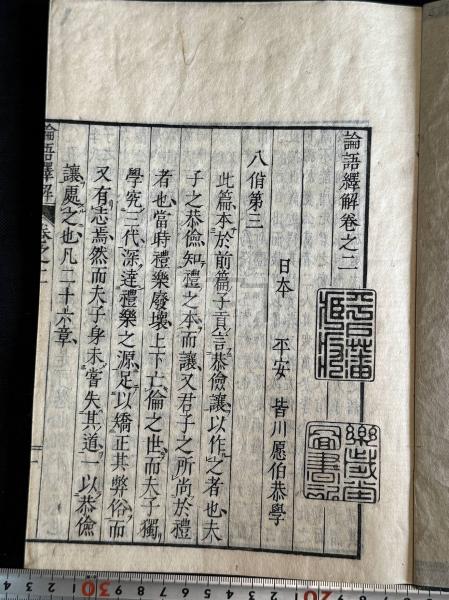 論語繹解卷之二
日本 平安 皆川愿伯恭學
八佾第三
此篇本於前篇子貢言恭儉讓以作之者也夫
子之恭儉知禮之本而讓又君子之所尚於禮
者也當時禮樂廢壞上下亡倫之世而夫子獨
學究三代深達禮樂之源足以矯正其弊俗而
又有志焉然而夫子身未嘗失其道一以恭儉
讓處之也凡二十六章
論語繹解 卷之二 一
樂歲堂圖書記